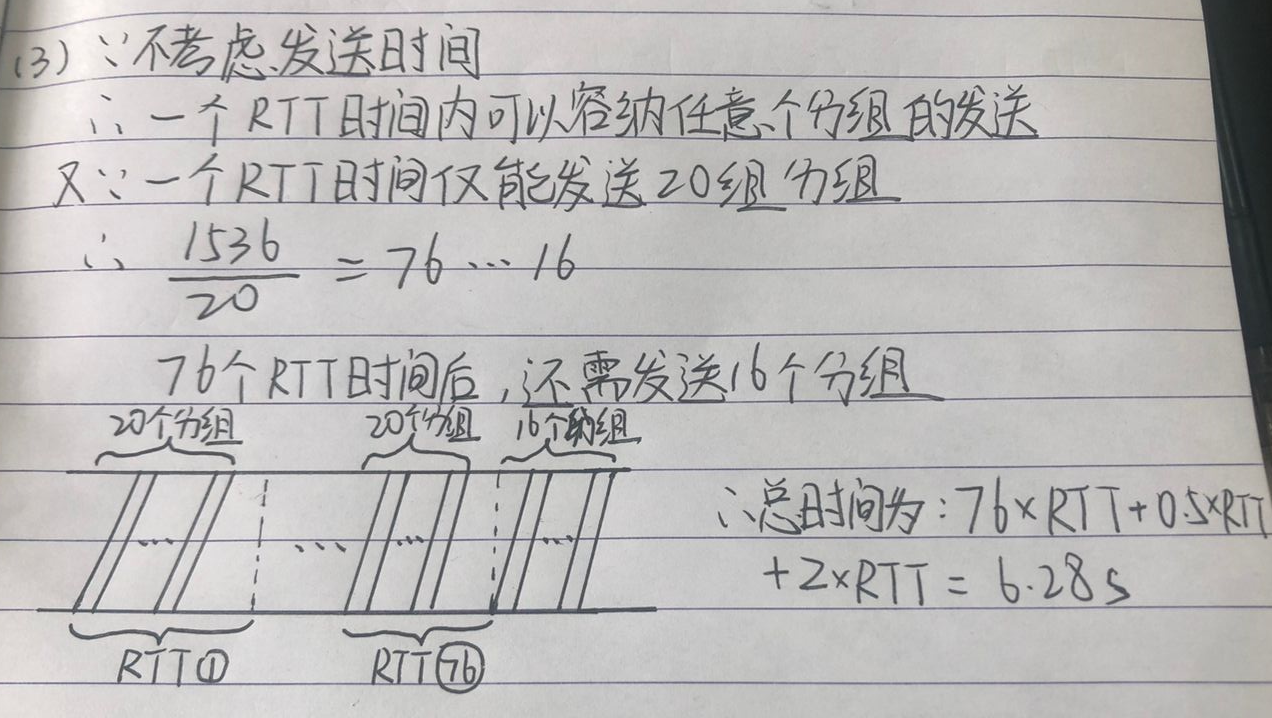 (3) ∵不考虑发送时间
∴一个RTT时间内可以容纳任意个分组的发送
又∵一个RTT时间仅能发送20组分组
∴ 1536/20 = 76…16
76个RTT时间后,还需发送16个分组
20个分组 20个分组 16个分组
… … … …
∴总时间为:76×RTT+0.5×RTT
+2×RTT = 6.28s
RTT① RTT㊆